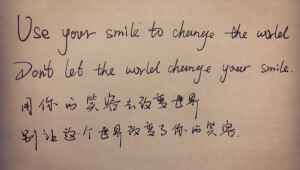 Use your smile to change the world
Don't let the world change your smile.
用你的笑容去改变世界
别让这个世界改变了你的笑容.